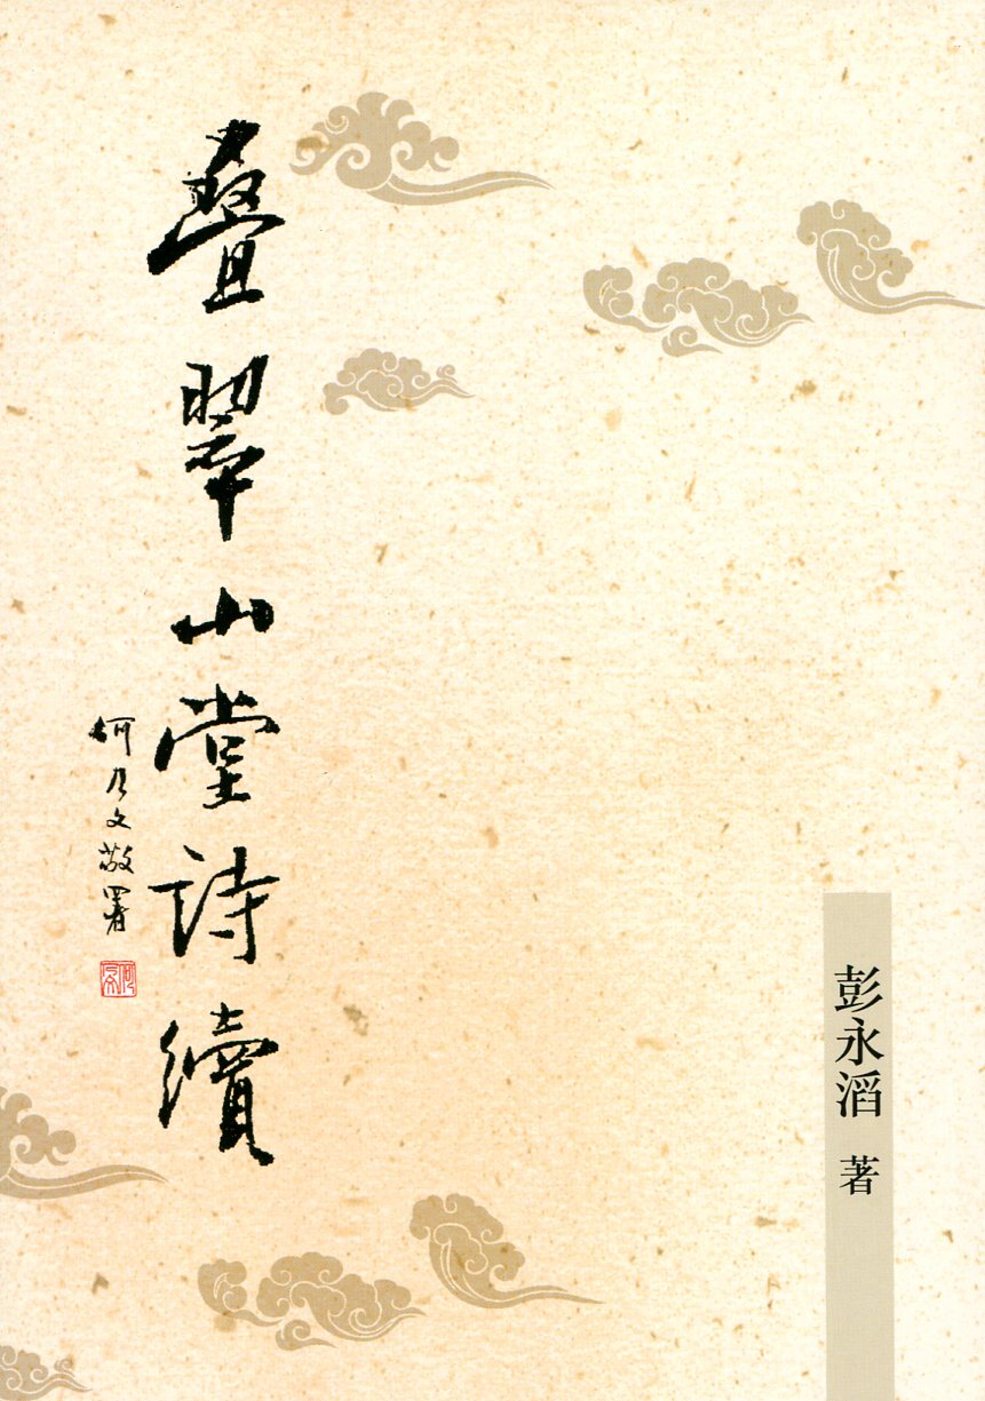 疊翠山堂詩續
何乃文敬署
彭永滔 著